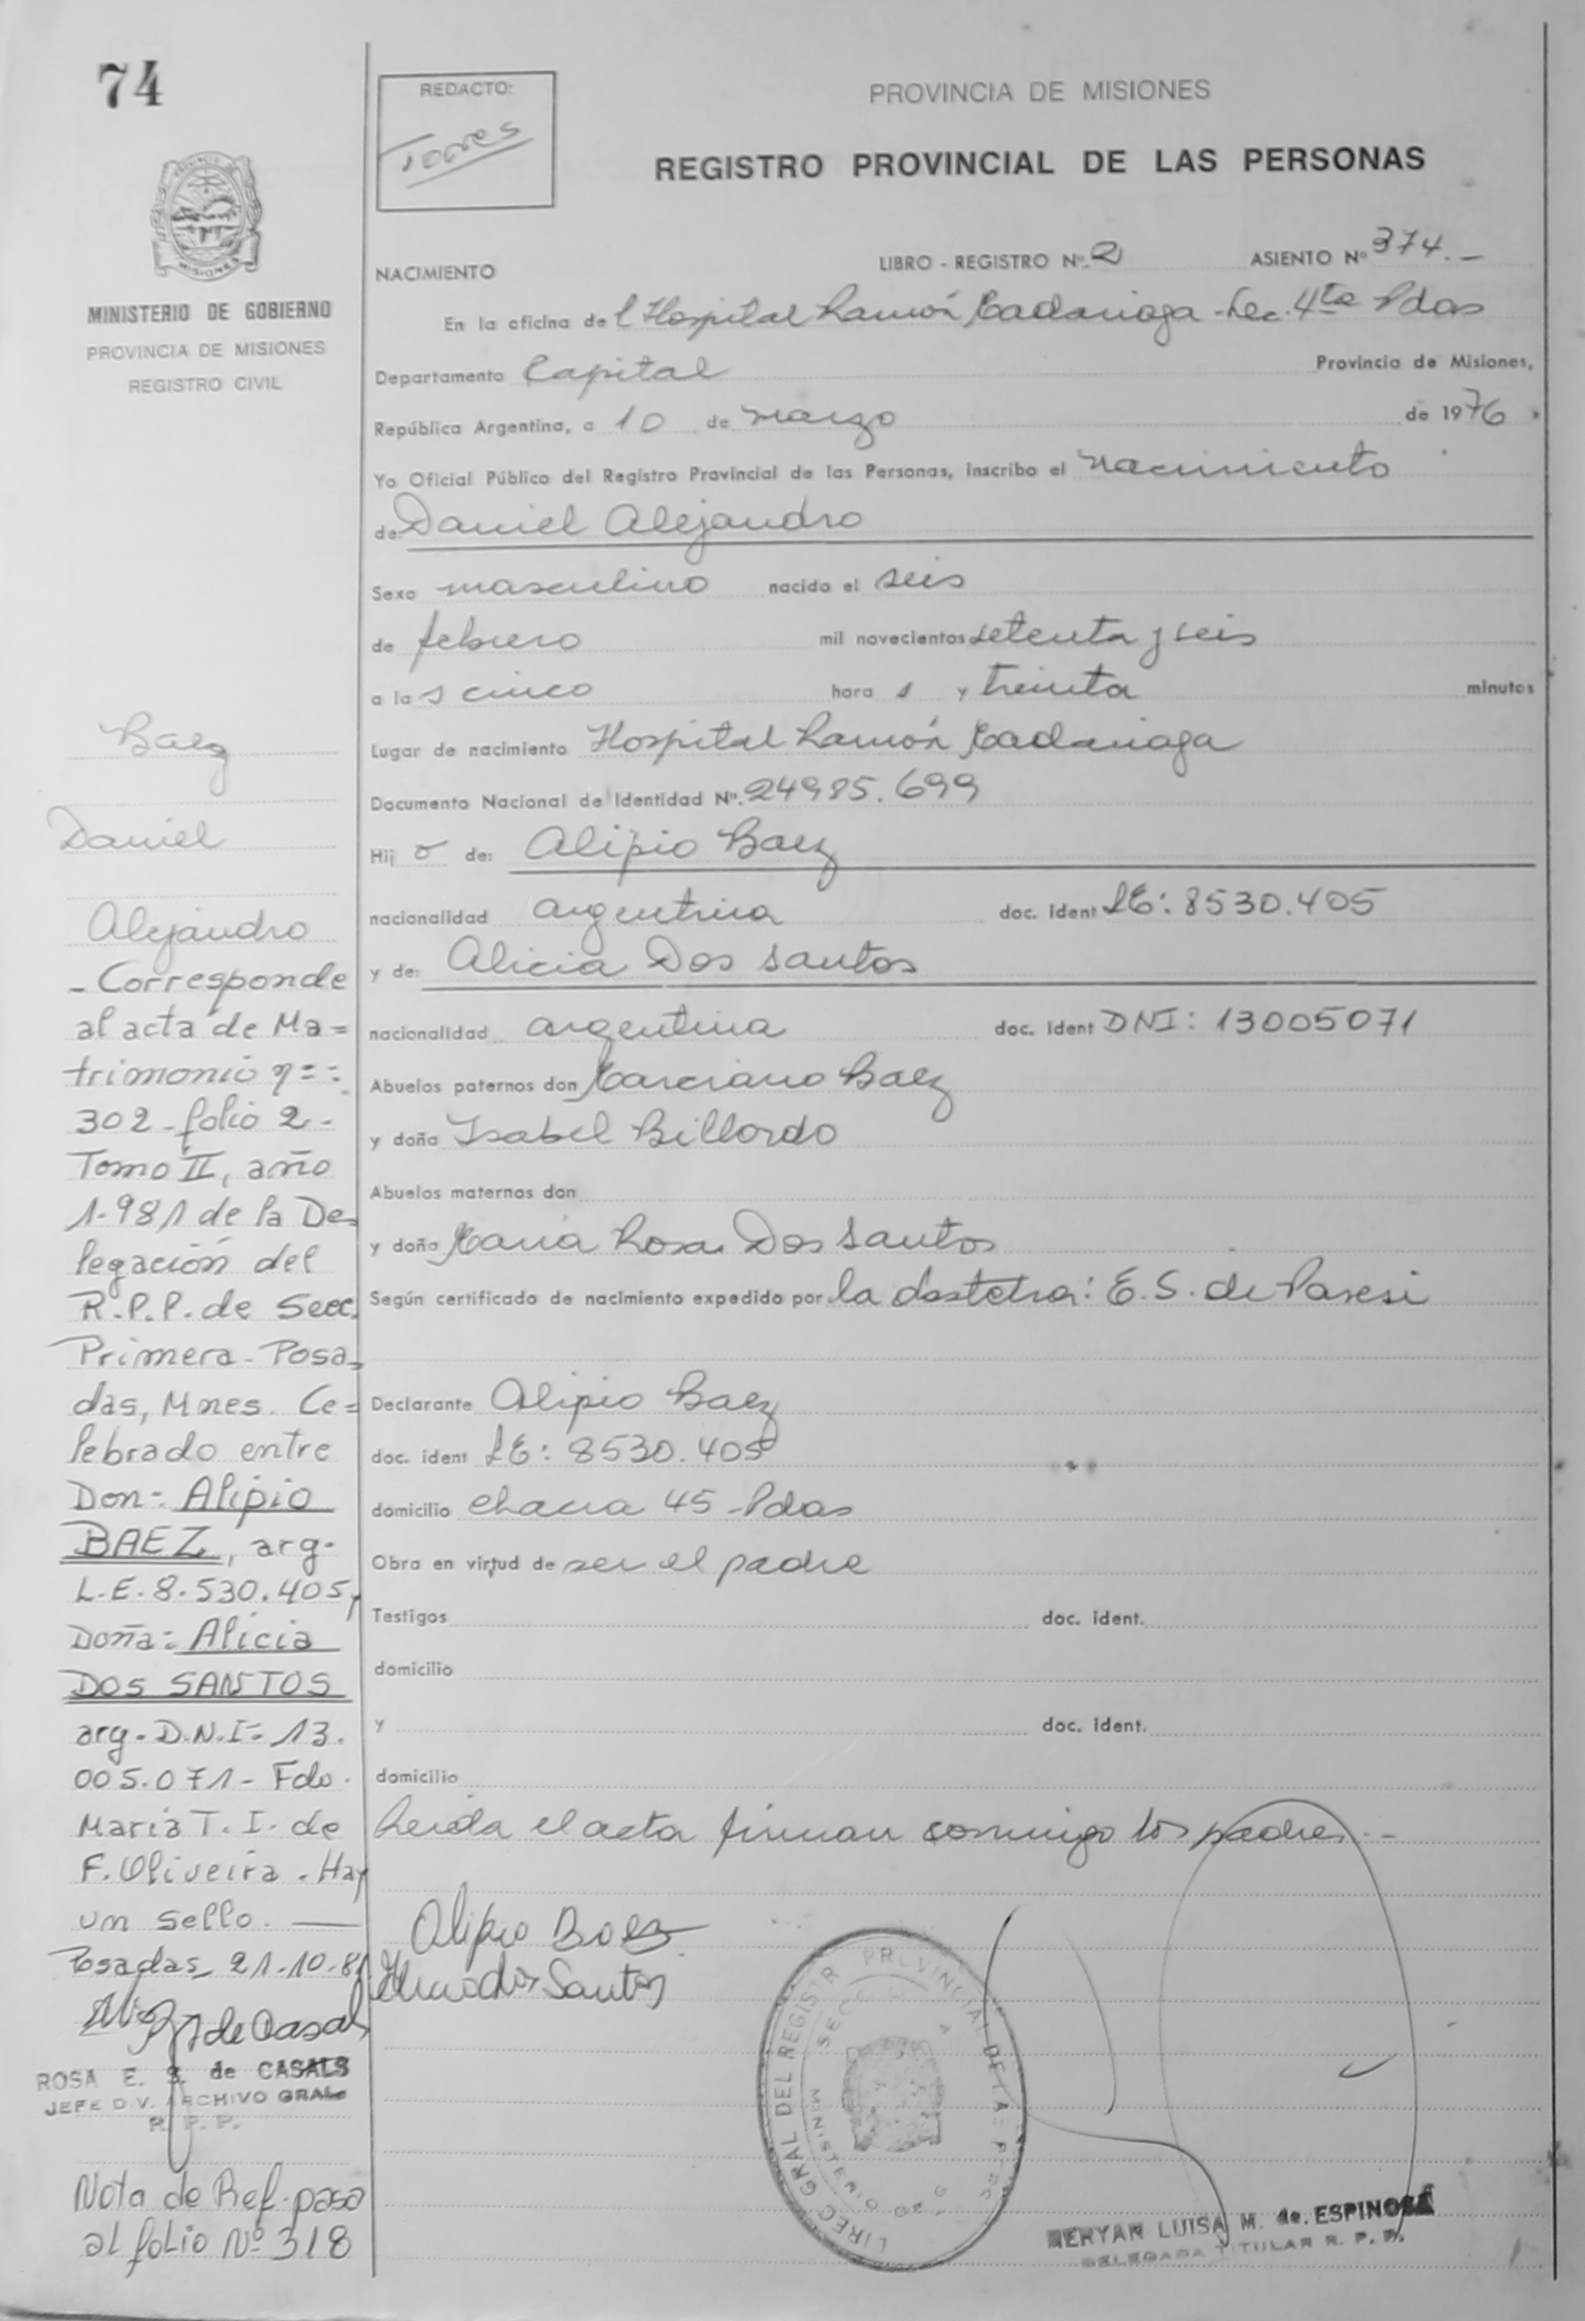 74
REDACTO:
Torres
PROVINCIA DE MISIONES
REGISTRO PROVINCIAL DE LAS PERSONAS
MISIONES
MINISTERIO DE GOBIERNO
PROVINCIA DE MISIONES
REGISTRO CIVIL
NACIMIENTO LIBRO - REGISTRO Nº. 2 ASIENTO Nº 374.-
En la oficina de l Hospital Ramón Madariaga - Sec. 4ta Pdas
Departamento Capital Provincia de Misiones,
República Argentina, a 10 de marzo de 1976.
Yo Oficial Público del Registro Provincial de las Personas, inscribo el nacimiento
de Daniel Alejandro
Sexo masculino nacido el seis
de febrero mil novecientos setenta y seis
a la s cinco hora s y treinta minutos
Lugar de nacimiento Hospital Ramón Madariaga
Documento Nacional de Identidad Nº. 24985.699
Hij o de: Alipio Baez
nacionalidad argentina doc. ident LE: 8530.405
y de: Alicia Dos Santos
nacionalidad argentina doc. ident DNI: 13005071
Abuelos paternos don Marciano Baez
y doña Isabel Billordo
Abuelos maternos don
y doña Maria Rosa Dos Santos
Según certificado de nacimiento expedido por la obstetra: E.S. de Paresi
Declarante Alipio Baez
doc. ident LE: 8530.405
domicilio chacra 45 - Pdas
Obra en virtud de ser el padre
Testigos doc. ident.
domicilio
y doc. ident.
domicilio
Leida el acta firman conmigo los padres.-
Alipio Baez
dos Santos
Baez
Daniel
Alejandro
- Corresponde
al acta de Ma=
trimonio nº:
302 - folio 2 -
Tomo II, año
1.981 de la De_
legación del
R.P.P. de Secc.
Primera - Posa_
das, Mnes. Ce=
lebrado entre
Don: Alipio
BAEZ, arg.
L.E. 8.530.405 y
Doña: Alicia
DOS SANTOS
arg. D.N.I: 13.
005.071 - Fdo.
Maria T. I. de
F. Oliveira. Hay
un sello. —
Posadas, 21-10-81
de Casals
ROSA E. S. de CASALS
JEFE DIV. ARCHIVO GRAL
R. P. P.
Nota de Ref. pasa
al folio Nº 318
DIREC GRAL DEL REGISTR PROVINCIAL DE LAS PERS
MINISTERIO DE GOB
MERYAN LUISA M. de. ESPINOSA
DELEGADA TITULAR R. P. P.